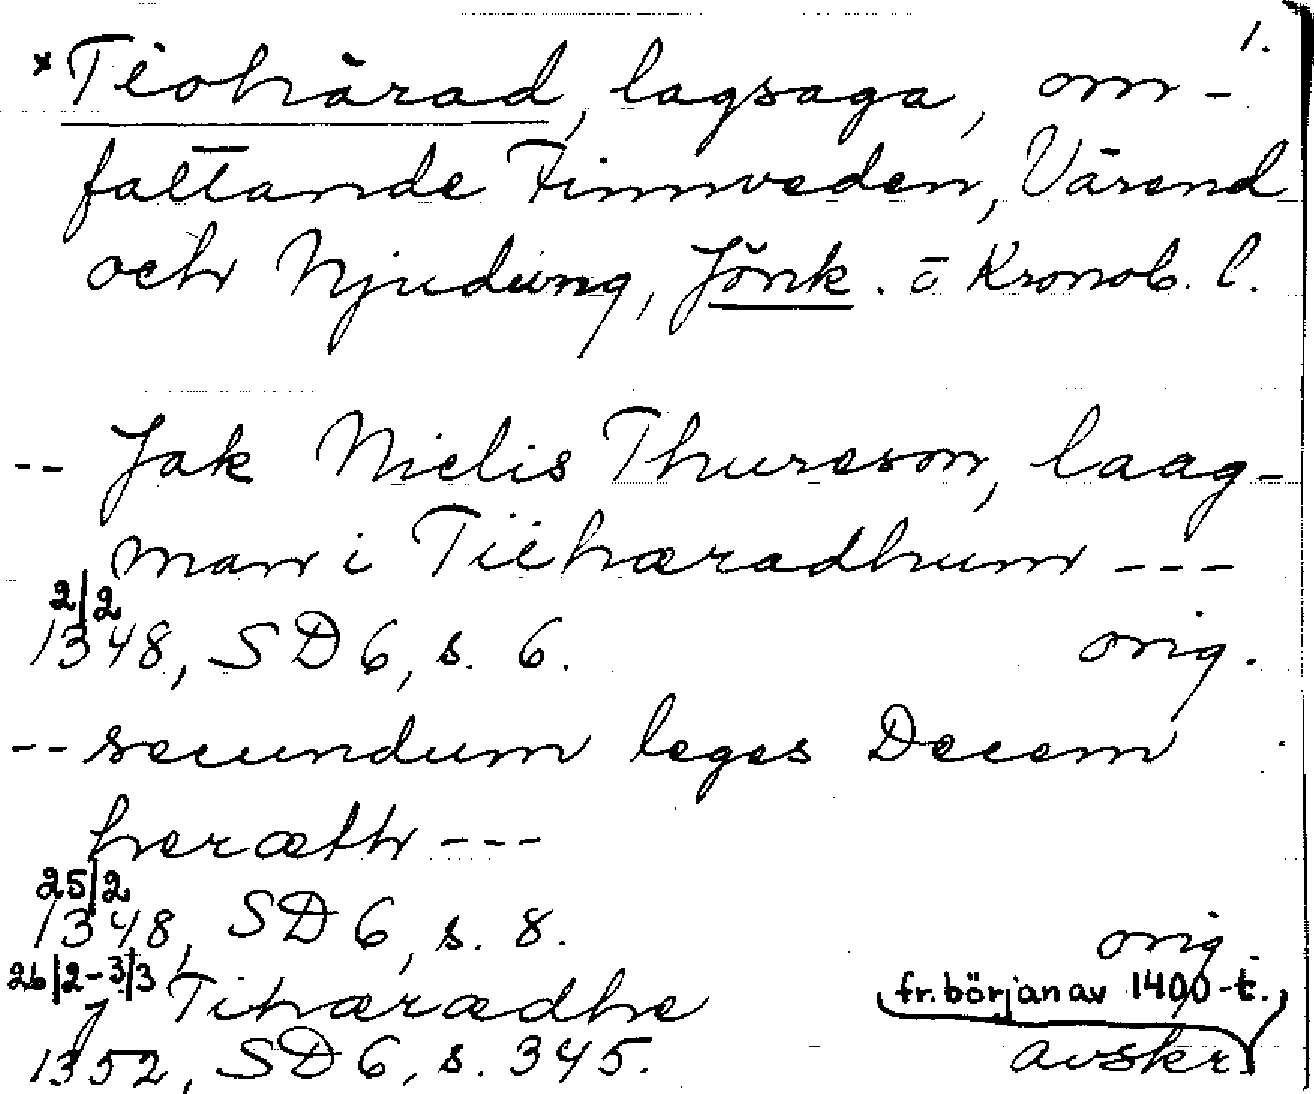 1.
*Tiohärad, lagsaga, om-
fattande Finnveden, Värend
och Njudung, Jönk. o Kronob. l.
-- Jak Nielis Thureson, laag-
man i Tiihæradhum ---
2/2
1348, SD 6, s. 6. orig.
-- secundum leges Decem
heræth ---
25/2
1348, SD 6, s. 8. orig.
26/2-3/3 j Tihærædhe fr. början av 1400-t.
1352, SD 6, s. 345. avskr.